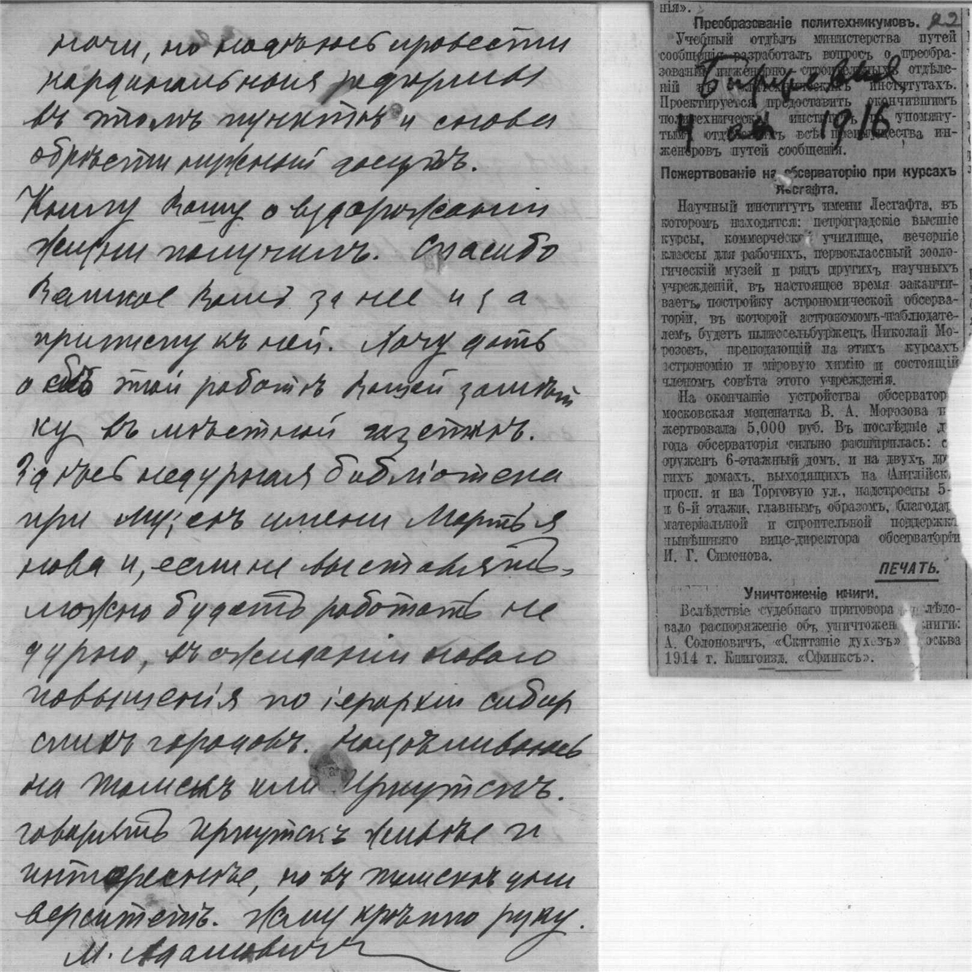 ночи, но надѣюсь провести
кардинальныя реформы
въ этомъ пунктѣ и снова
обрѣсти нужный досугъ.
Книгу Вашу о вздорожаніи
жизни получилъ. Спасибо
Великое Вамъ за нее и за
приписку къ ней. Хочу дать
о этой работѣ Вашей замѣт
ку въ мѣстной газеткѣ.
Здѣсь недурная библіотека
при музеѣ имени Мартья
нова и, если не выставлять,
можно будетъ работать не
дурно, въ ожиданіи новаго
повышенія по іерархіи сибир
скихъ городовъ. Нацѣливаюсь
на Томскъ или Иркутскъ.
Говорятъ Иркутскъ живѣе и
интереснѣе, но въ Томскѣ уни
верситетъ. Жму крѣпко руку.
М. Адамович
нія».
Преобразованіе политехникумовъ. 22
Учебный отдѣлъ министерства путей
сообщенія разработалъ вопросъ о преобра-
зованіи инженерно-строительныхъ отдѣле-
ній въ институтахъ.
Проектируется предоставить окончившимъ
политехническіе институты по упомяну-
тымъ отдѣламъ всѣ преимущества ин-
женеровъ путей сообщенія.
Биржевыя
4 1916
Пожертвованіе на обсерваторію при курсахъ
Лесгафта.
Научный институтъ имени Лесгафта, въ
которомъ находятся: петроградскіе высшіе
курсы, коммерческое училище, вечерніе
классы для рабочихъ, первоклассный зооло-
гическій музей и рядъ другихъ научныхъ
учрежденій, въ настоящее время заканчи-
ваетъ постройку астрономической обсерва-
торіи, въ которой астрономомъ-наблюдате-
лемъ будетъ шлиссельбуржецъ Николай Мо-
розовъ, преподающій на этихъ курсахъ
астрономію и міровую химію и состоящій
членомъ совѣта этого учрежденія.
На окончаніе устройства обсерватор
московская меценатка В. А. Морозова п
жертвовала 5,000 руб. Въ послѣдніе д
года обсерваторія сильно расширилась: с
оруженъ 6-этажный домъ, и на двухъ дру
гихъ домахъ, выходящихъ на Англійск.
просп. и на Торговую ул., надстроены 5-
и 6-й этажи, главнымъ образомъ, благодар
матеріальной и строительной поддержк
нынѣшняго вице-директора обсерваторіи
И. Г. Симонова.
ПЕЧАТЬ.
Уничтоженіе книги.
Вслѣдствіе судебнаго приговора послѣдо-
вало распоряженіе объ уничтоженіи книги:
А. Солоновичъ, «Скитаніе духа». Москва
1914 г. Книгоизд. «Сфинксъ».